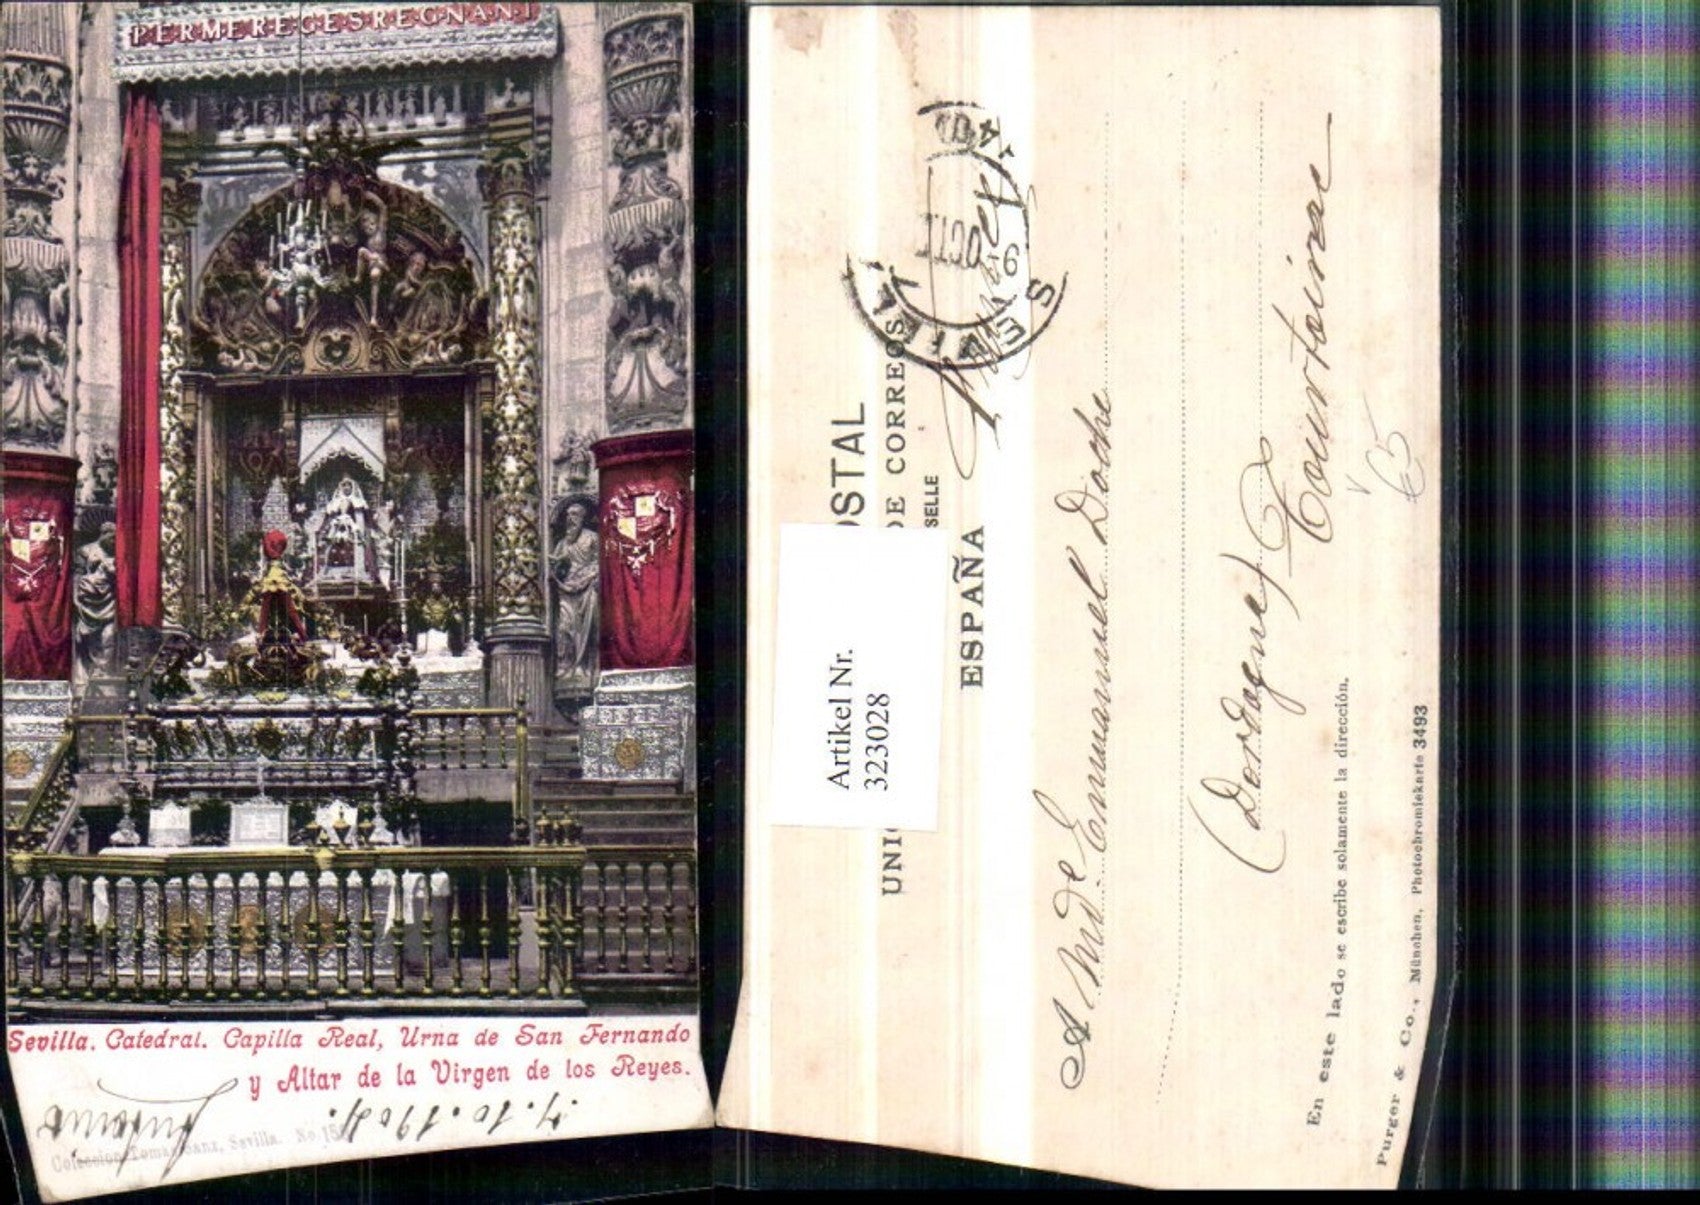 PER ME REGES REGNANT
Sevilla. Catedral. Capilla Real, Urna de San Fernando
y Altar de la Virgen de los Reyes.
Antonio
7.10.1904.
Coleccion Tomas Sanz, Sevilla. No. 15
OSTAL
UNI DE CORREOS
SELLE
ESPAÑA
SEVILLA
9 OCT
04
Artikel Nr.
323028
A Mde Emmanuel Doche
Tourtoirac
(Dordogne)
65
En este lado se escribe solamente la dirección.
Purger & Co., München, Photochromiekarte 3493